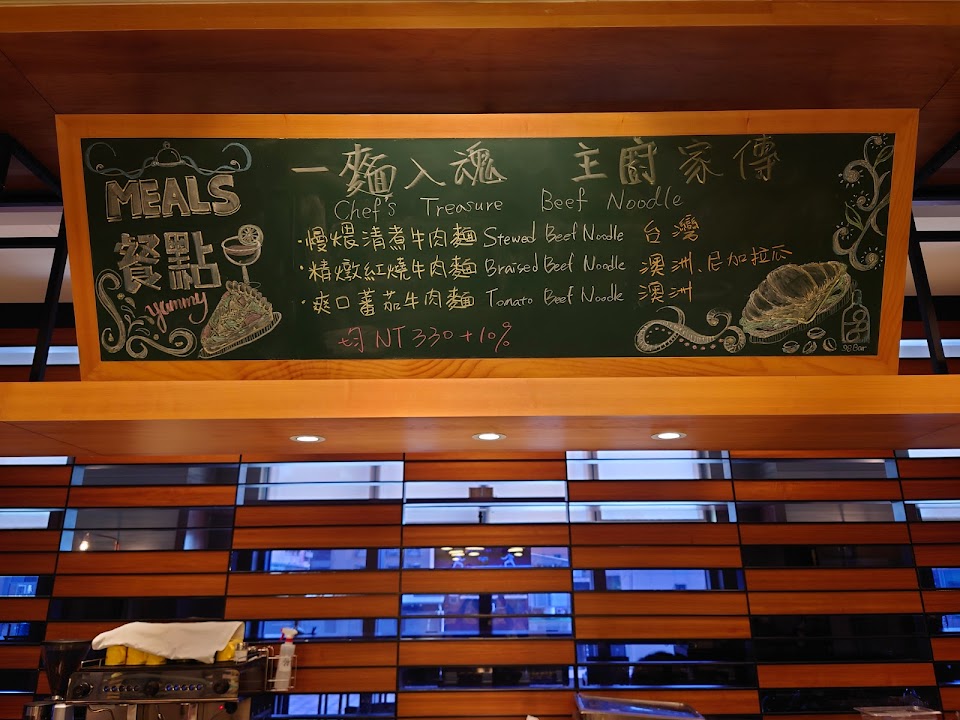 MEALS
餐點
yummy
一麵入魂 主廚家傳
Chef's Treasure Beef Noodle
·慢煨清煮牛肉麵 Stewed Beef Noodle 台灣
·精燉紅燒牛肉麵 Braised Beef Noodle 澳洲、尼加拉瓜
·爽口蕃茄牛肉麵 Tomato Beef Noodle 澳洲
均 NT 330 + 10%